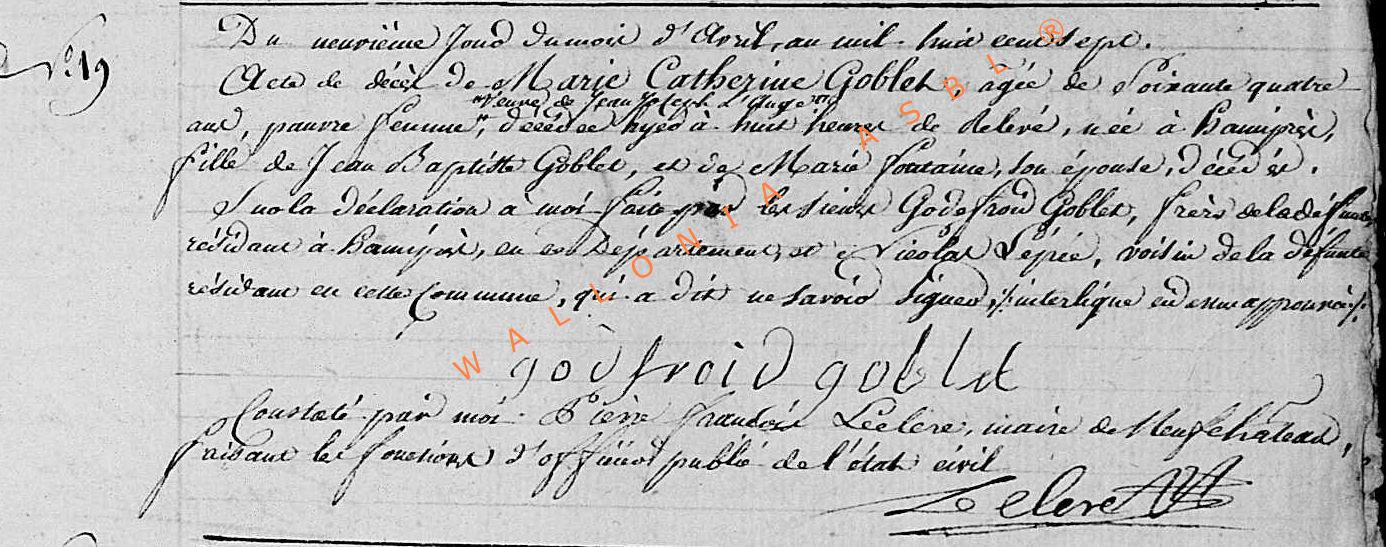 N.° 19
Du neuvième Jour du mois d'Avril, au mil huit cent sept.
Acte de décès de Marie Catherine Goblet, agée de Soixante quatre
veuve de Jean Joseph
ans, pauvre femme, décédée hyer à huit heures de Relevé, née à hamipré,
fille de Jean Baptiste Goblet, et de Marie fontaine, son épouse, décédés.
Sur la déclaration à moi faite par les sieurs Godefroid Goblet, frère de la défunte,
résidant à hamipré, en ce Département, et Nicolas Lépée, voisin de la défunte
résidant en cette Commune, qui a dit ne savoir signer, interligne approuvé
godfroid goblet
Constaté par moi Pierre françois Leclere, maire de Neufchâteau,
faisant les fonctions d'officier public de l'état civil
Leclere
WALLONIA ASBL ®